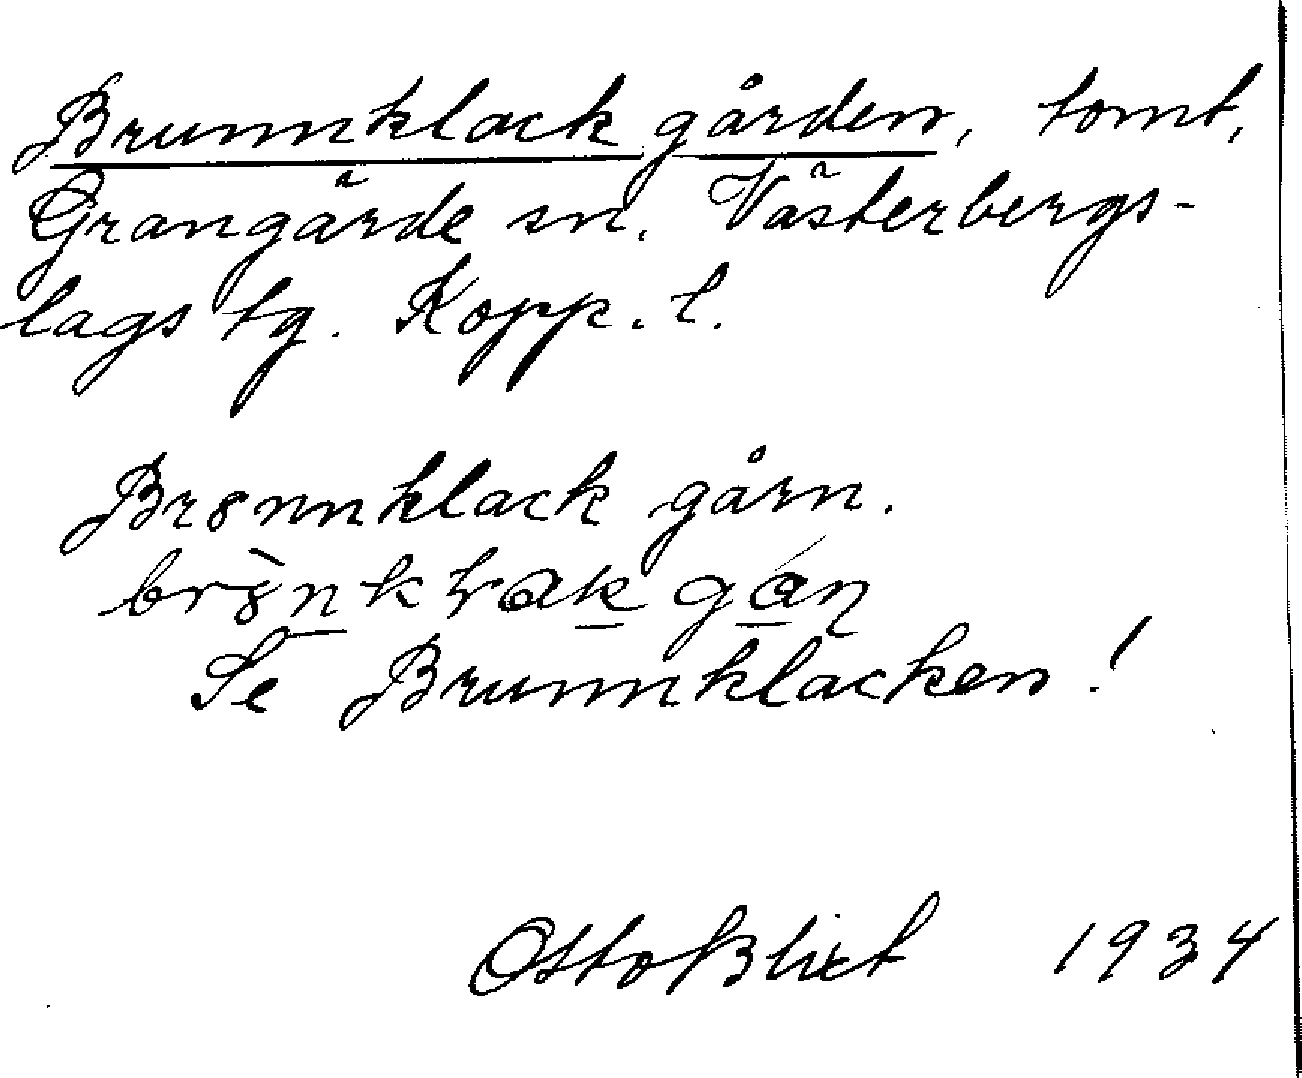 Brunnklack gården, tomt,
Grangärde sn. Västerbergs-
lags tg. Kopp. l.
Brȣnnklack gårn.
Se Brunnklacken!
Otto Blixt 1934